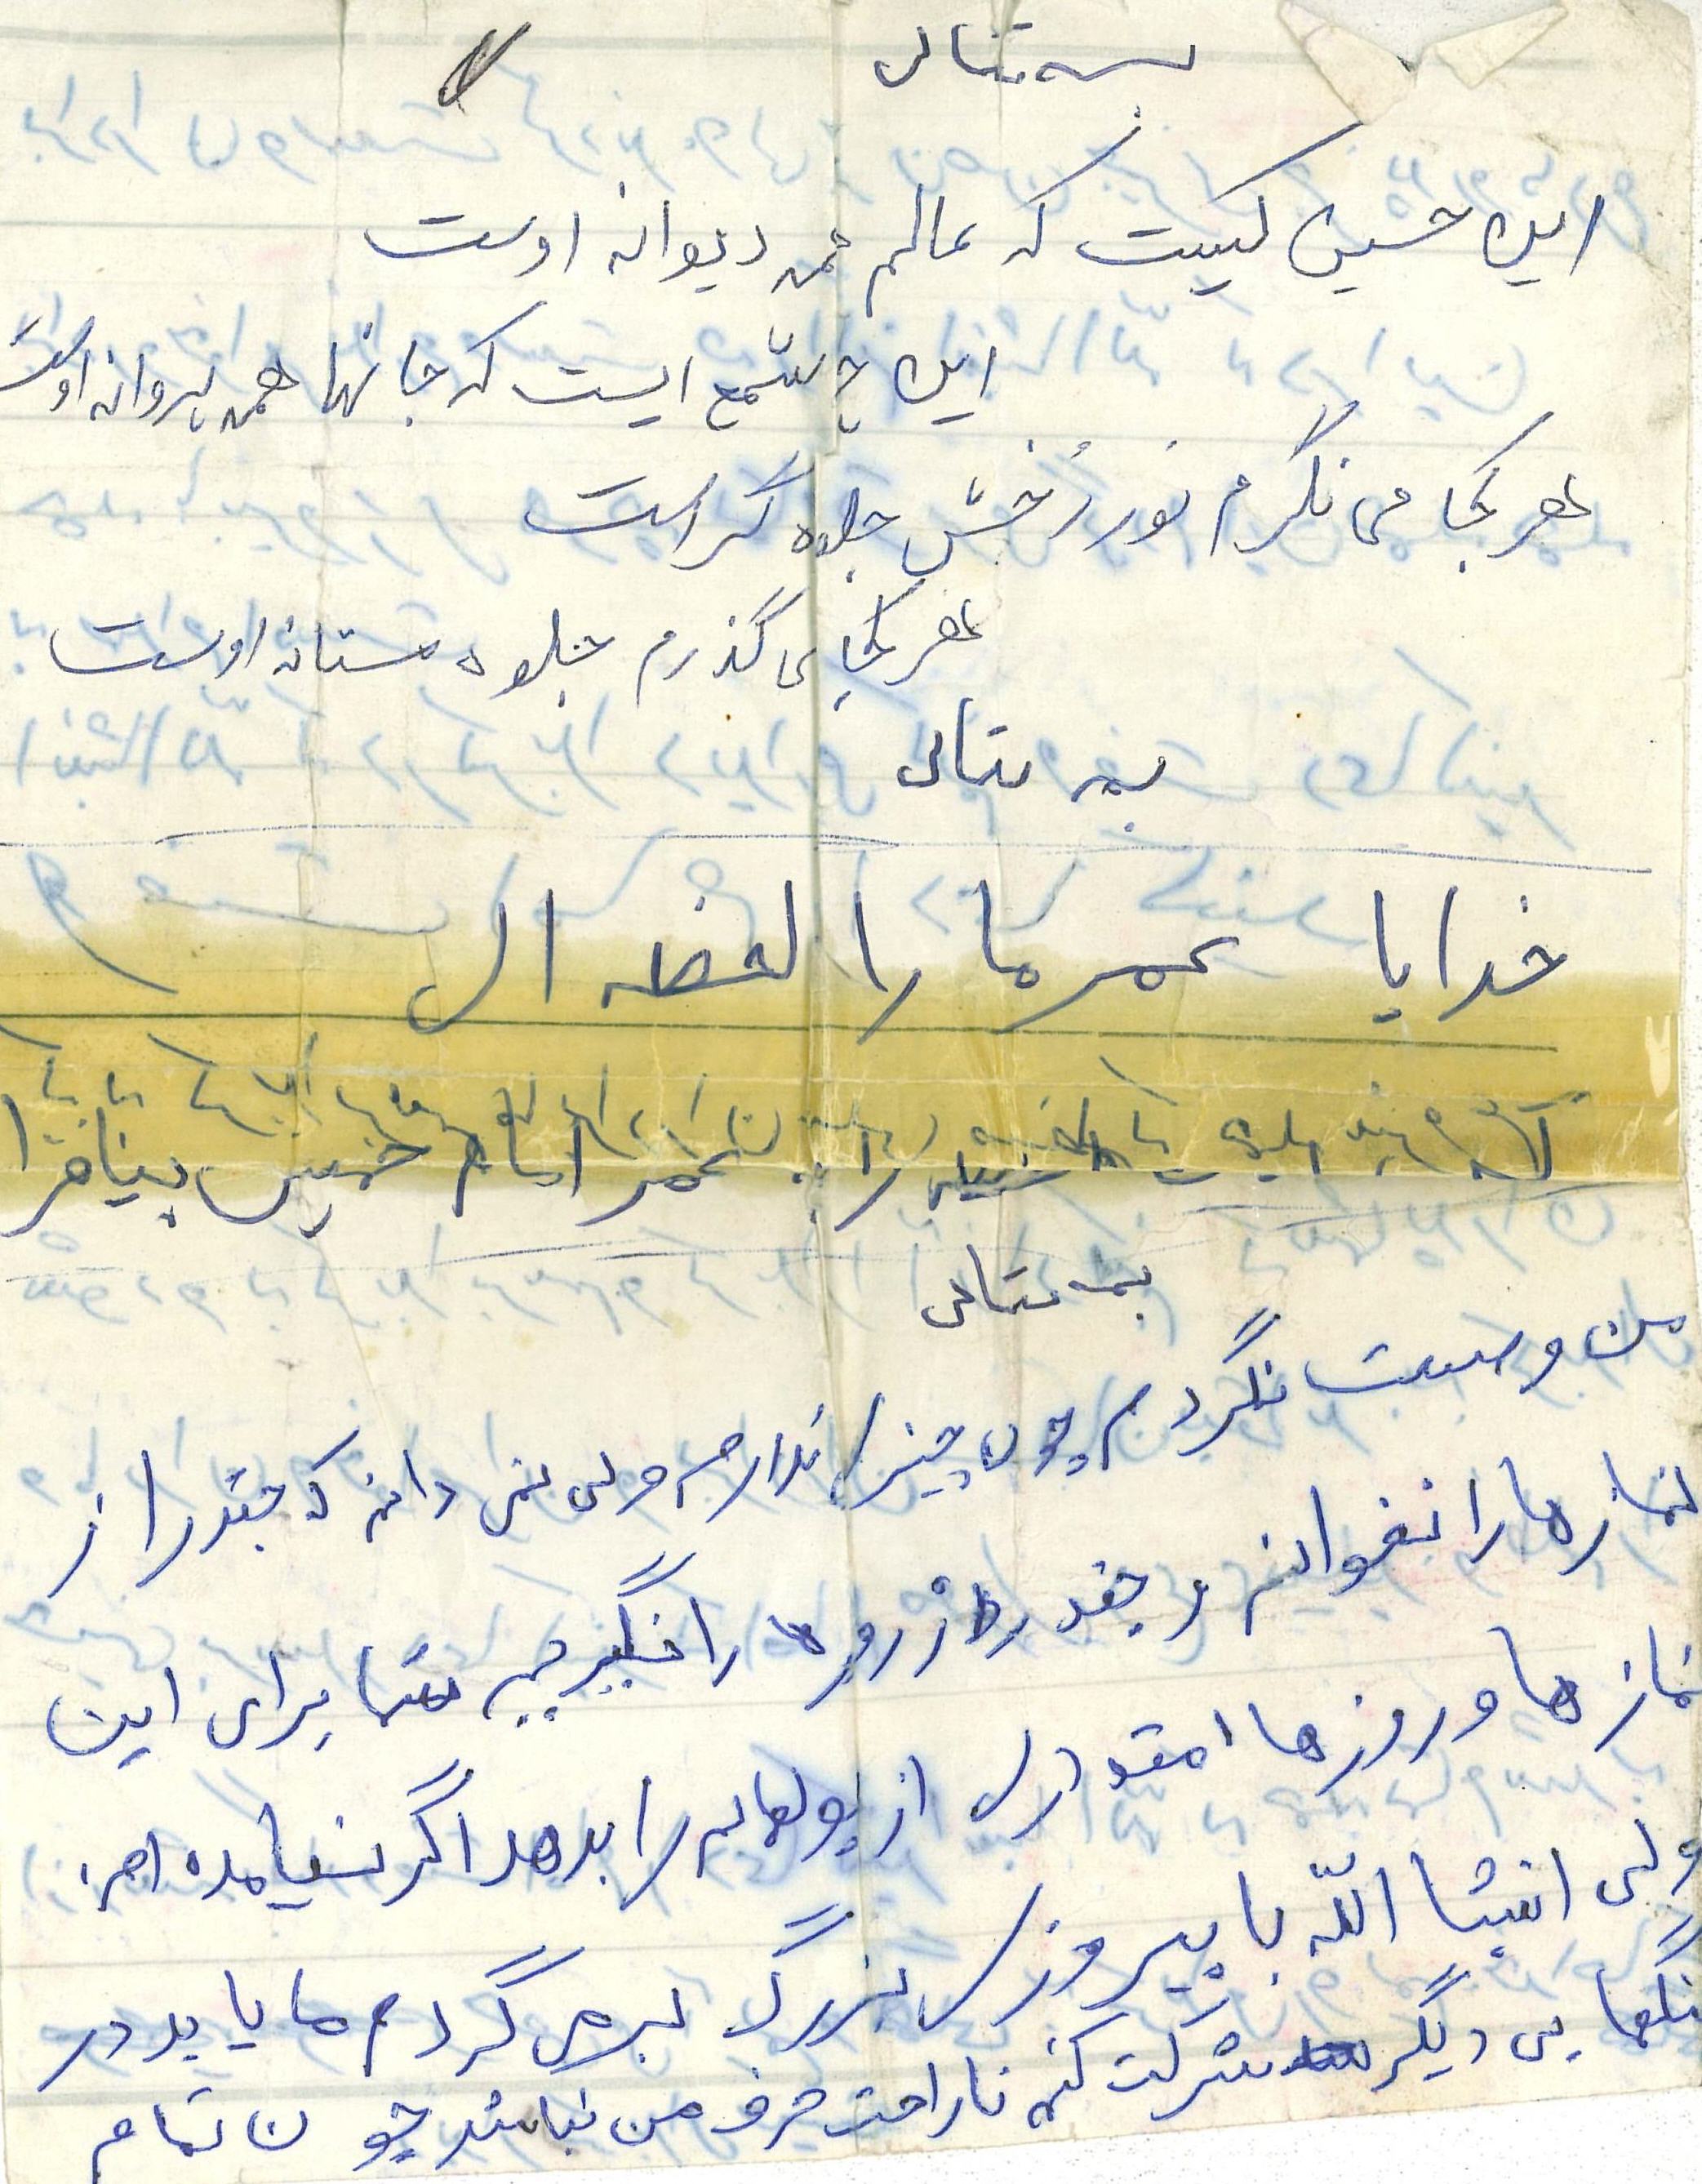 بسمه تعالی
این حسین کیست که عالم همه دیوانه اوست
این چه شمع ایست که جانها همه پروانه اوست
هر کجا می نگرم نور رخش جلوه گر است
هر کجا می گذرم جلوه مستانه اوست
بسمه تعالی
خدایا عمر ما را لحظه ای
را به عمر امام خمینی بیافزا
بسمه تعالی
من وصیت نکردم چون چیزی ندارم ولی نمی دانم که چقدر از
نمازها را نخواندم و چقدر از روزه ها را نگیرفتم شما برای این
نماز ها و روزها مقداری از پولهایم را بدهد اگر نیامده ام.
ولی انشا الله با پیروزی بزرگ بر می گردم ما باید در
جنگهایی دیگر شرکت کنم ناراحت من نباشد چون تمام